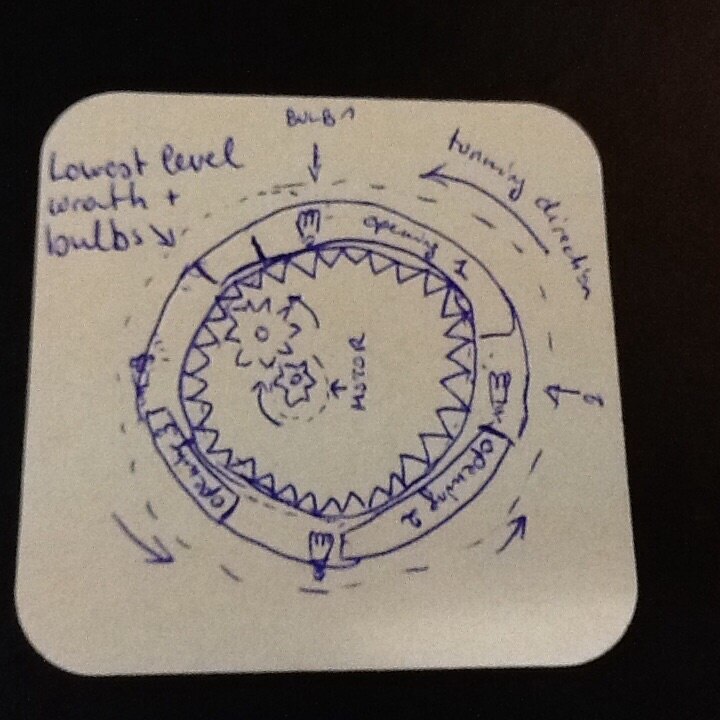 BULB 1
Lowest level
wrath +
bulbs
turning direction
opening 1
MOTOR
opening 2
opening 3